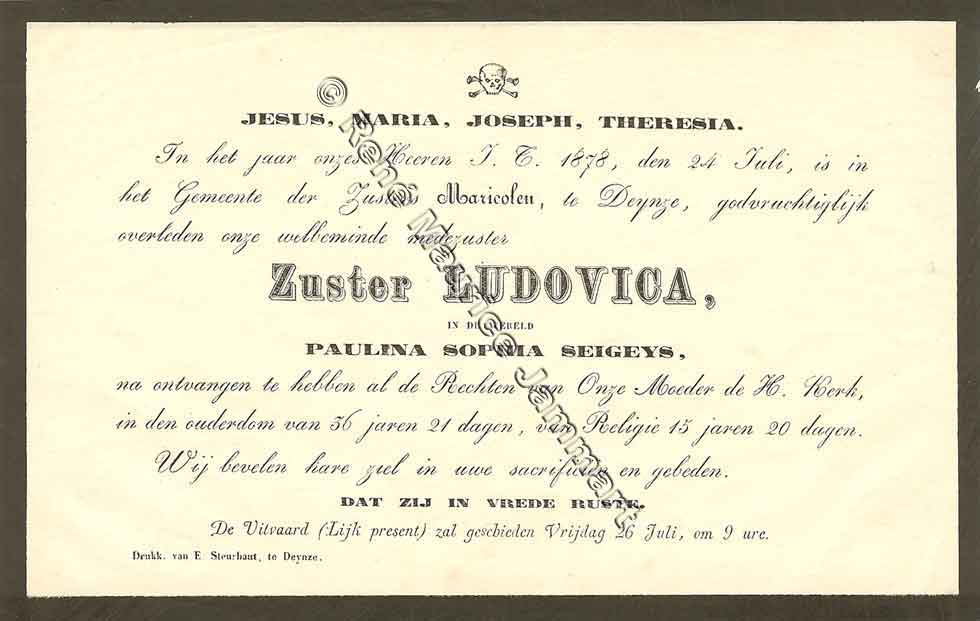 JESUS, MARIA, JOSEPH, THERESIA.
In het jaar onzes Heeren J. C. 1878, den 24 Juli, is in
het Gemeente der Zusters Maricolen, te Deynze, godvruchtiglijk
overleden onze welbeminde medezuster
Zuster LUDOVICA,
IN DE WERELD
PAULINA SOPHIA SEIGEYS,
na ontvangen te hebben al de Rechten van Onze Moeder de H. Kerk,
in den ouderdom van 36 jaren 21 dagen, van Religie 15 jaren 20 dagen.
Wij bevelen hare ziel in uwe sacrificien en gebeden.
DAT ZIJ IN VREDE RUSTE.
De Uitvaard (Lijk present) zal geschieden Vrijdag 26 Juli, om 9 ure.
Drukk. van E. Steurbaut, te Deynze.
© René Maurice Jammart